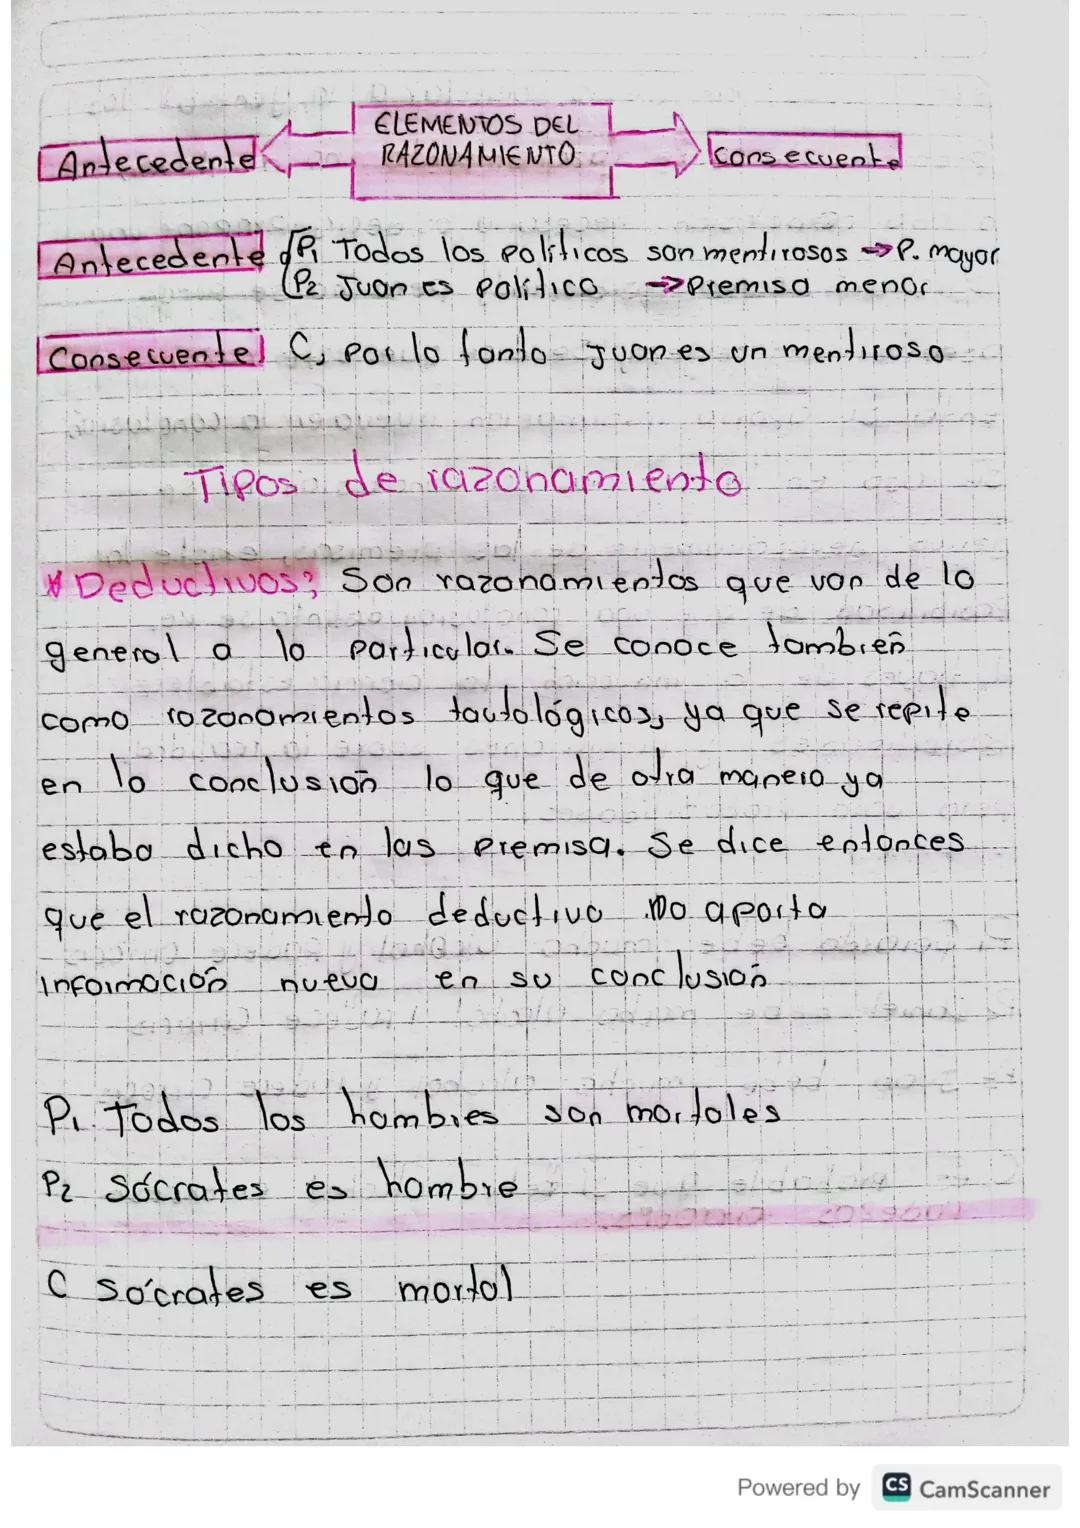 ELEMENTOS DEL
RAZONAMIENTO
Antecedente
Consecuente
Antecedente P1 Todos los políticos son mentirosos → P. mayor
P2 Juan es político → Premisa menor
Consecuente C, Por lo tanto Juan es un mentiroso
Tipos de razonamiento
* Deductivos: Son razonamientos que van de lo
general a lo particular. Se conoce también
como razonamientos tautológicos, ya que se repite
en la conclusión lo que de otra manera ya
estaba dicho en las premisa. Se dice entonces
que el razonamiento deductivo no aporta
información nueva en su conclusión
P1. Todos los hombres son mortales
P2 Sócrates es hombre
C Sócrates es mortal
Powered by CS CamScanner